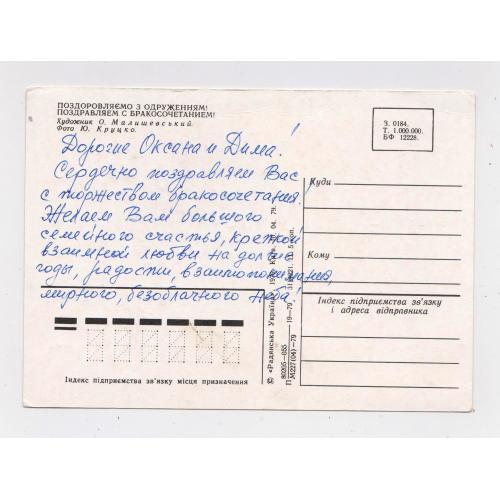 ПОЗДОРОВЛЯЄМО З ОДРУЖЕННЯМ!
ПОЗДРАВЛЯЕМ С БРАКОСОЧЕТАНИЕМ!
Художник О. Малишевський.
Фото Ю. Круцко.
Дорогие Оксана и Дима!
Сердечно поздравляем Вас
с торжеством бракосочетания!
Желаем Вам большого
семейного счастья, крепкой
взаимной любви на долгие
годы, радости, взаимопонимания,
мирного, безоблачного неба!
З. 0184.
Т. 1.000.000.
БФ 12228.
Куди
Кому
Індекс підприємства зв'язку
і адреса відправника
Індекс підприємства зв'язку місця призначення
© «Радянська Україна»
04. 79.
80205—055
М227(04)—79
19—79